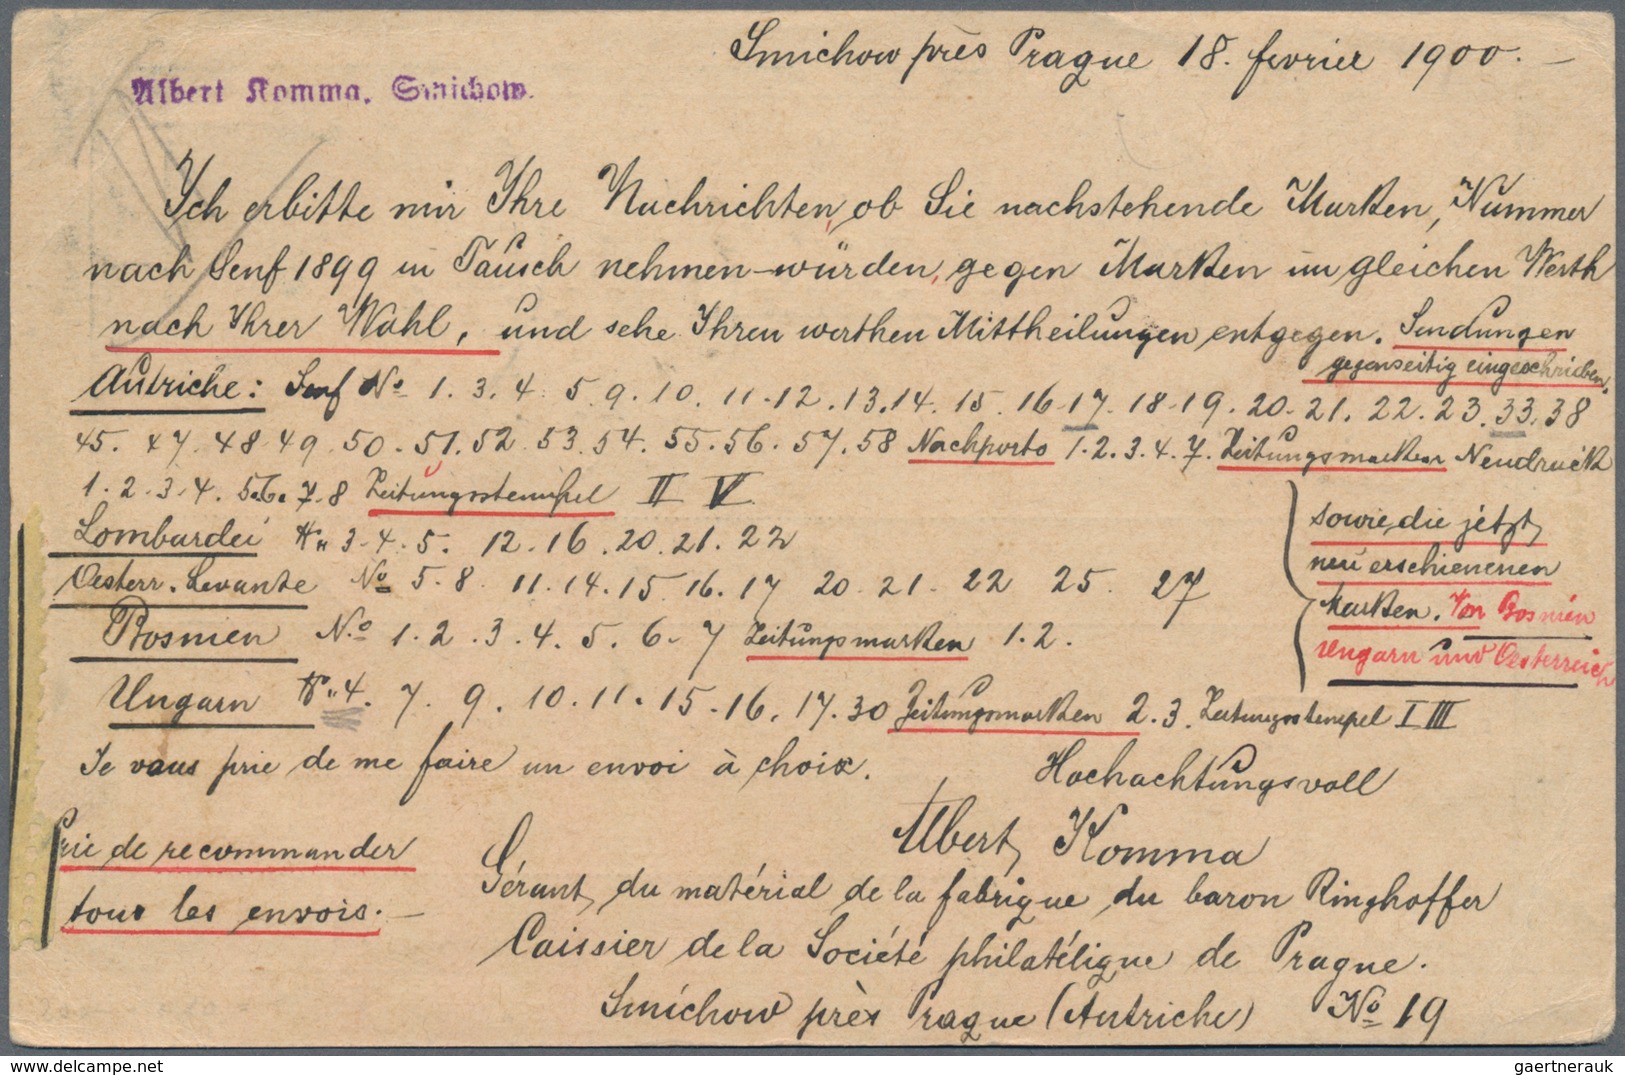 Smichow près Prague 18. fevrier 1900. –
Albert Komma, Smichow.
Ich erbitte mir Ihre Nachrichten, ob Sie nachstehende Marken, Nummer
nach Senf 1899 in Tausch nehmen würden, gegen Marken im gleichen Werth
nach Ihrer Wahl, und sehe Ihren werthen Mittheilungen entgegen. Sendungen
gegenseitig eingeschrieben.
Autriche: Senf No 1. 3. 4. 5. 9. 10. 11. 12. 13. 14. 15. 16. 17. 18. 19. 20. 21. 22. 23. 33. 38
45. 47. 48. 49. 50. 51. 52. 53. 54. 55. 56. 57. 58 Nachporto 1. 2. 3. 4. 7. Zeitungsmarken Neudruck
1. 2. 3. 4. 5. 6. 7. 8 Zeitungsstempel II V.
Lombardei No 3. 4. 5. 12. 16. 20. 21. 22
Oesterr. Levante No 5. 8. 11. 14. 15. 16. 17 20. 21. 22 25. 27
Bosnien No 1. 2. 3. 4. 5. 6. 7 Zeitungsmarken 1. 2.
Ungarn No 4. 7. 9. 10. 11. 15. 16. 17. 30 Zeitungsmarken 2. 3. Zeitungsstempel I III
sowie die jetzt
neu erschienenen
Marken. Von Bosnien
Ungarn und Oesterreich
Je vous prie de me faire un envoi à choix.
Hochachtungsvoll
Albert Komma
Prie de recommander
tous les envois. –
Gérant du matérial de la fabrique du baron Ringhoffer
Caissier de la Société philatéligue de Prague.
Smíchow près Prague (Autriche) No 19
gaertnerauk